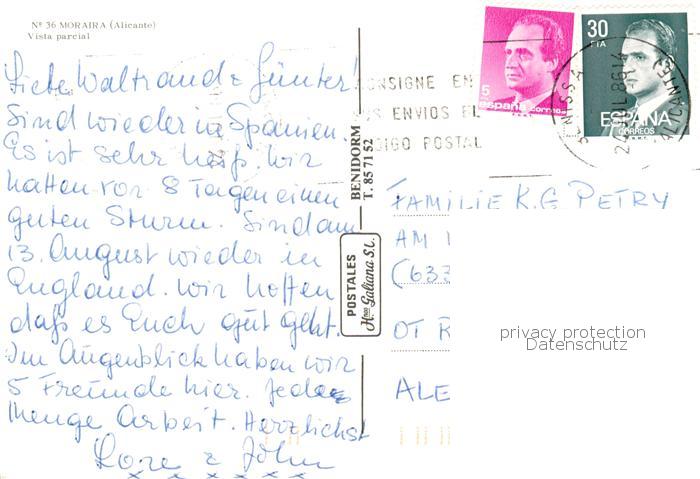 Nº 36 MORAIRA (Alicante)
Vista parcial
Liebe Waltraud & Günter!
Sind wieder in Spanien.
Es ist sehr heiß. Wir
hatten vor 8 Tagen einen
guten Sturm. Sind am
13. August wieder in
England. Wir hoffen
daß es Euch gut geht.
Im Augenblick haben wir
5 Freunde hier. Jede
Menge Arbeit. Herzlichst
Lore & John
x x x x x x
BENIDORM
T. 85 71 52
POSTALES
Hnos Galiana S.L.
CONSIGNE EN
SUS ENVIOS EL
CODIGO POSTAL
5
españa correos
30
PTA
ESPAÑA
CORREOS
BENISSA
24 JUL 86
ALICANTE
FAMILIE K.G PETRY
AM
(633
OT R
ALE
privacy protection
Datenschutz